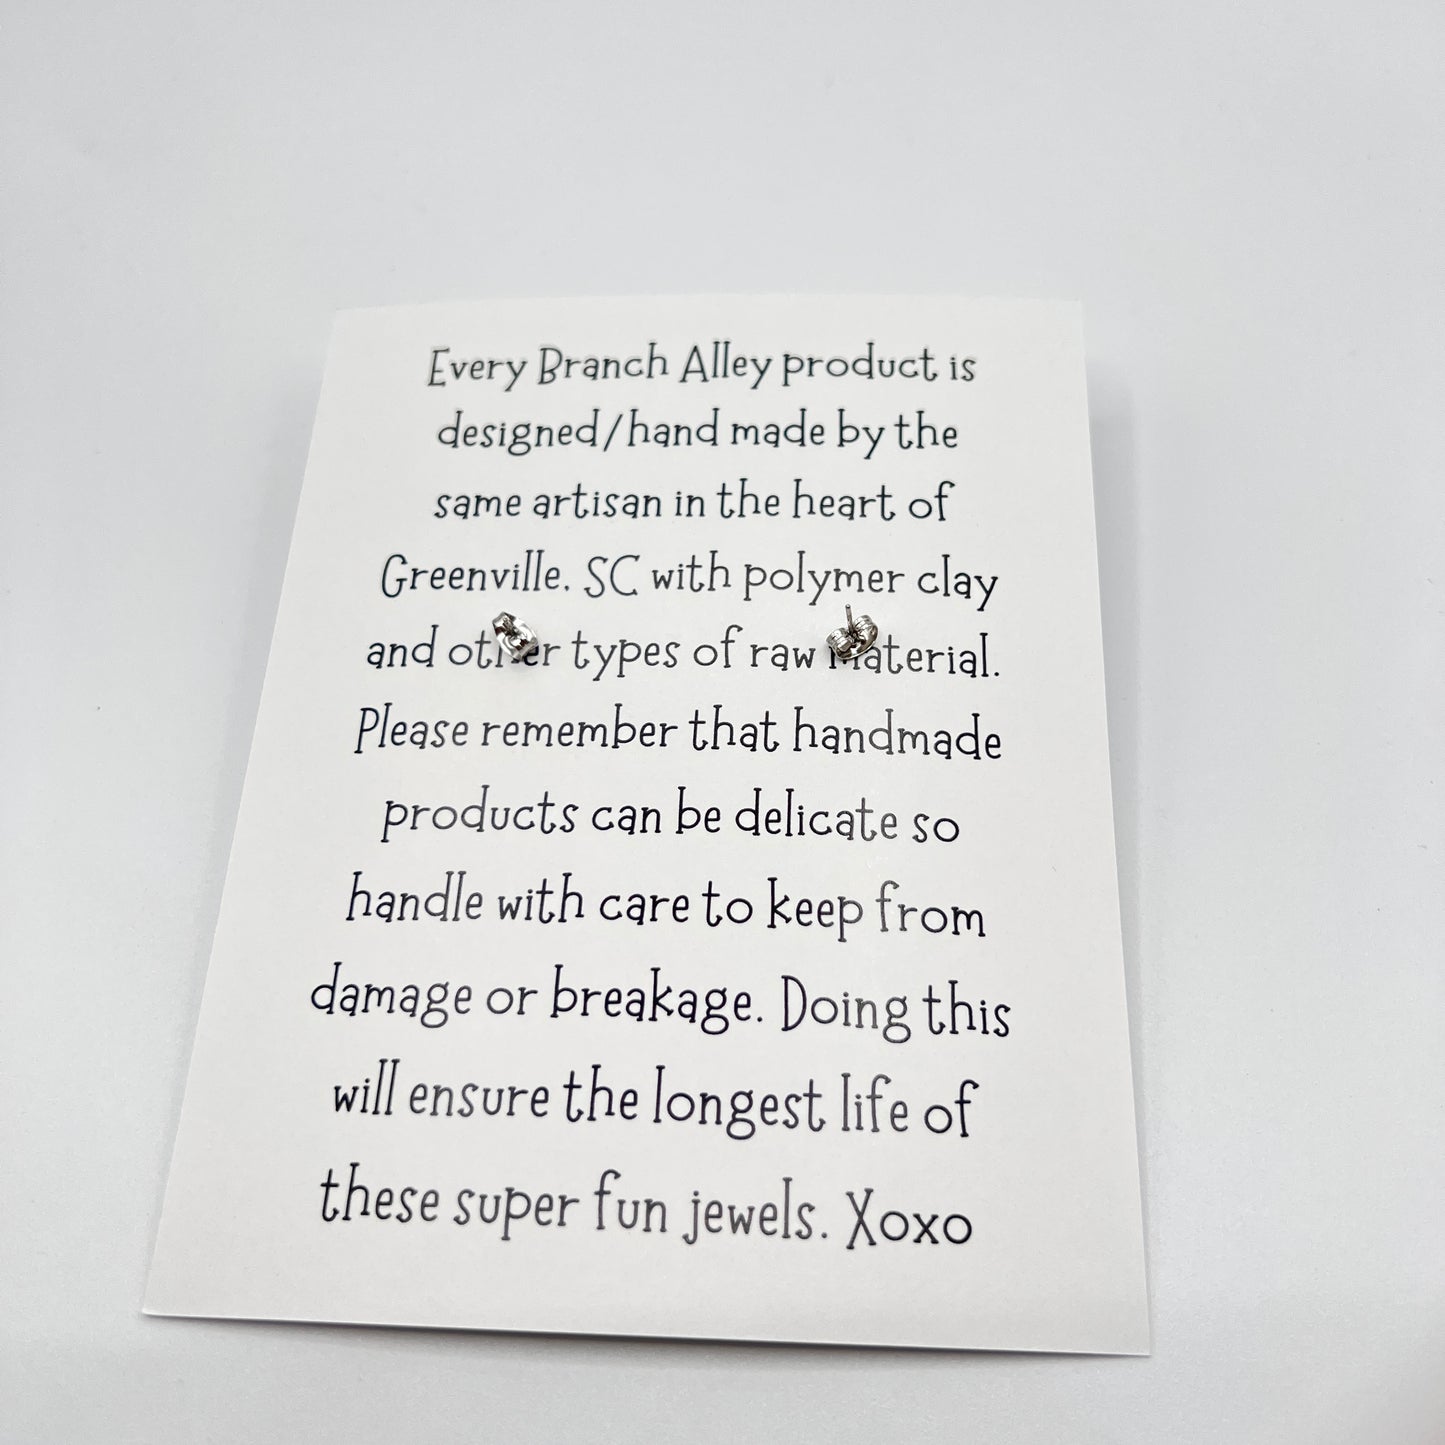 Every Branch Alley product is
designed/hand made by the
same artisan in the heart of
Greenville. SC with polymer clay
and other types of raw material.
Please remember that handmade
products can be delicate so
handle with care to keep from
damage or breakage. Doing this
will ensure the longest life of
these super fun jewels. Xoxo